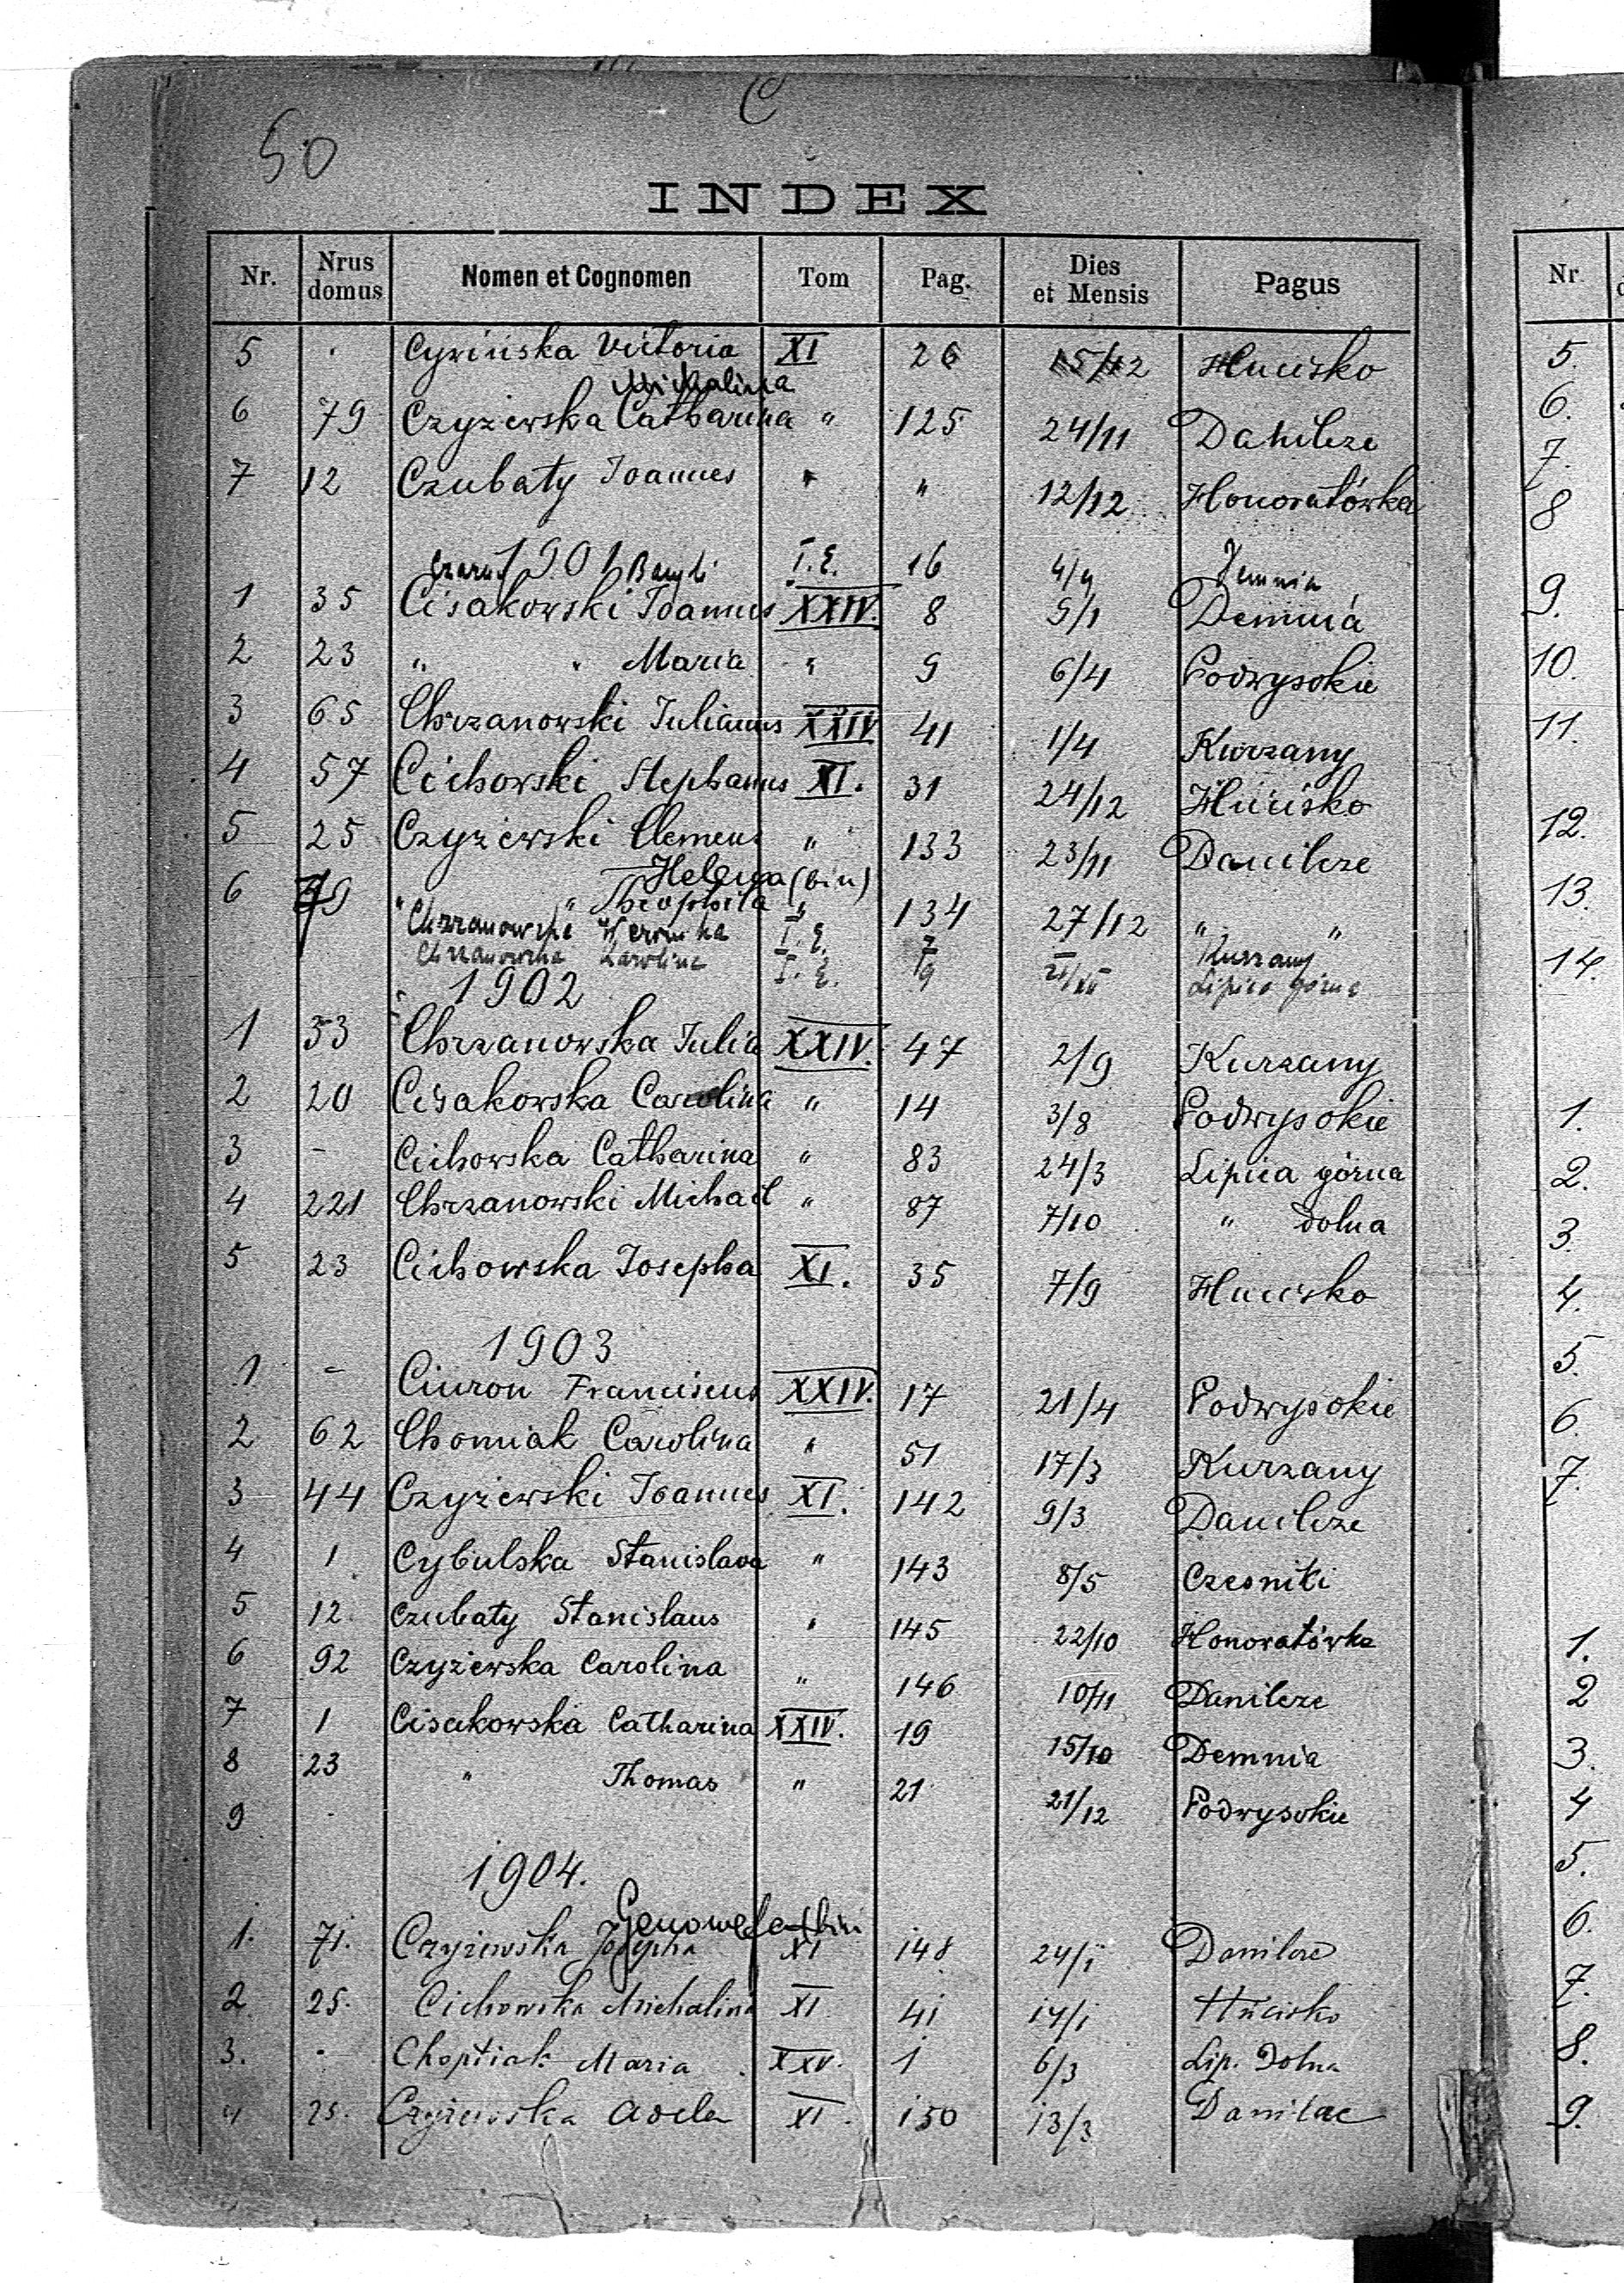 C
50
INDEX
Nr. Nrus domus Nomen et Cognomen Tom Pag. Dies et Mensis Pagus
5 . Cywińska Victoria XI 26 15/12 Hucisko
Michalina
6 79 Czyżewska Catharina " 125 24/11 Danilcze
7 12 Czubaty Joannes " " 12/12 Honoratówka
1901
I. E. 16 4/4 Demnia
1 35 Cisakowski Joannes XXIV. 8 5/1 Demnia
2 23 " " Maria " 9 6/4 Podwysokie
3 65 Chrzanowski Julianus XXIV 41 1/4 Kurzany
4 57 Cichowski Stephanus XI. 31 24/12 Hucisko
5 25 Czyżewski Clemens " 133 23/11 Danilcze
Helena (bin)
6 79 " " Theophila " 134 27/12 " "
Chrzanowska I. E. 7 Kurzany
Chrzanowska Karolina I. E. 9 Lipica górna
1902
1 53 Chrzanowska Julia XXIV. 47 2/9 Kurzany
2 20 Cisakowska Carolina " 14 3/8 Podwysokie
3 – Cichowska Catharina " 83 24/3 Lipica górna
4 221 Chrzanowski Michael " 87 7/10 " dolna
5 23 Cichowska Josepha XI. 35 7/9 Hucisko
1903
1 – Ciuron Franciscus XXIV. 17 21/4 Podwysokie
2 62 Chomiak Carolina " 51 17/3 Kurzany
3 44 Czyżewski Joannes XI. 142 9/3 Danilcze
4 1 Cybulska Stanislava " 143 8/5 Czesniki
5 12 Czubaty Stanislaus " 145 22/10 Honoratówka
6 92 Czyżewska Carolina " 146 10/11 Danilcze
7 1 Cisakowska Catharina XXIV. 19 15/10 Demnia
8 23 " Thomas " 21 21/12 Podwysokie
9
1904.
Genowefa bin
1. 71. Czyżewska Josepha XI 148 24/1 Danilcze
2 25. Cichowska Michalina XI 41 14/1 Hucisko
3. . Choptiak Maria XXV. 1 6/3 Lip. Dolna
4 25. Czyżewska Adela XI. 150 13/3 Danilcze
Nr
5.
6.
7.
8
9.
10.
11.
12.
13.
14.
1.
2.
3.
4.
5.
6.
7.
1.
2
3.
4
5.
6.
7.
8.
9.